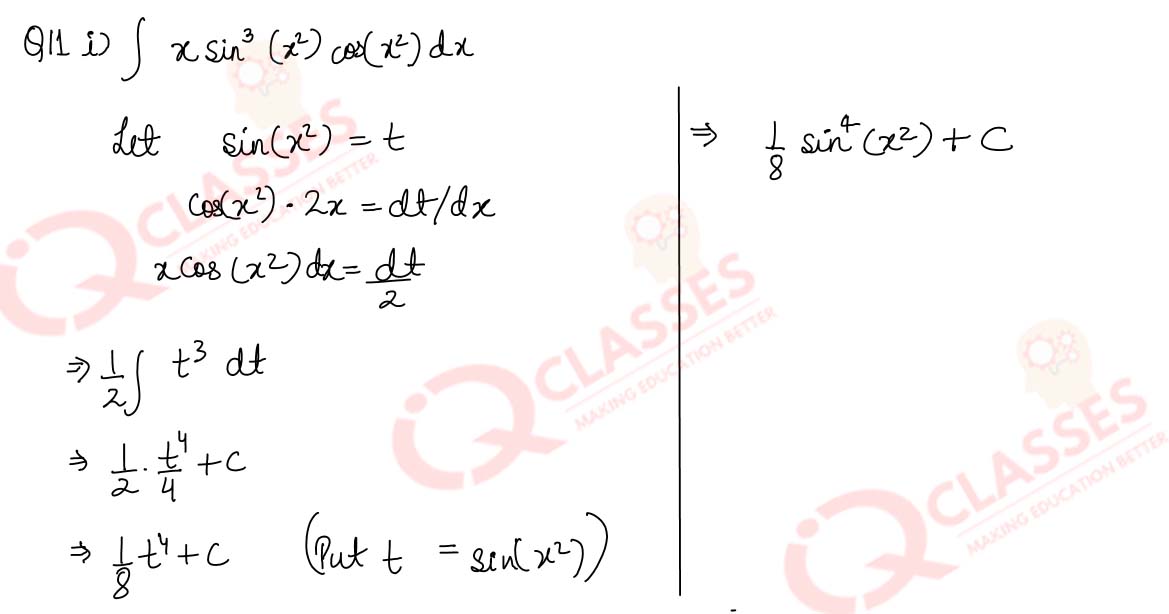 Q11 i) ∫ x sin³ (x²) cos(x²) dx
Let sin(x²) = t
cos(x²) · 2x = dt/dx
x cos (x²) dx = dt/2
⇒ 1/2 ∫ t³ dt
⇒ 1/2 · t⁴/4 + C
⇒ 1/8 t⁴ + C (Put t = sin(x²))
⇒ 1/8 sin⁴ (x²) + C
CLASSES
MAKING EDUCATION BETTER
CLASSES
MAKING EDUCATION BETTER
CLASSES
MAKING EDUCATION BETTER